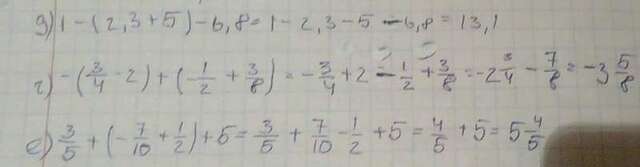 д) 1 - (2,3 + 5) - 6,8 = 1 - 2,3 - 5 - 6,8 = 13,1
г) -(3/4 - 2) + (-1/2 + 3/8) = -3/4 + 2 - 1/2 + 3/8 = -2 3/4 - 7/8 = -3 5/8
е) 3/5 + (-7/10 + 1/2) + 5 = 3/5 + 7/10 - 1/2 + 5 = 4/5 + 5 = 5 4/5